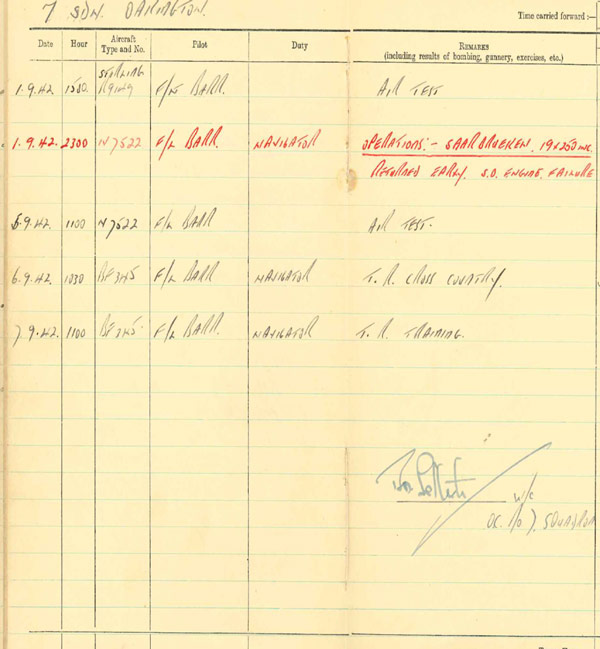 7 SQN. OAKINGTON.
Time carried forward:—
Date Hour Aircraft Type and No. Pilot Duty REMARKS (including results of bombing, gunnery, exercises, etc.)
STIRLING
1.9.42 1500 R9149 F/LT BARR. AIR TEST
1.9.42. 2300 N7522 F/L BARR. NAVIGATOR OPERATIONS:- SAARBRUCKEN. 19x250 INC.
RETURNED EARLY. S.O. ENGINE. FAILURE
5.9.42. 1100 N7522 F/L BARR AIR TEST.
6.9.42. 1030 BF345 F/L BARR NAVIGATOR T.R. CROSS COUNTRY.
7.9.42. 1100 BF345. F/L BARR. NAVIGATOR T.R. TRAINING.
W/C
OC 7. SQUADRON